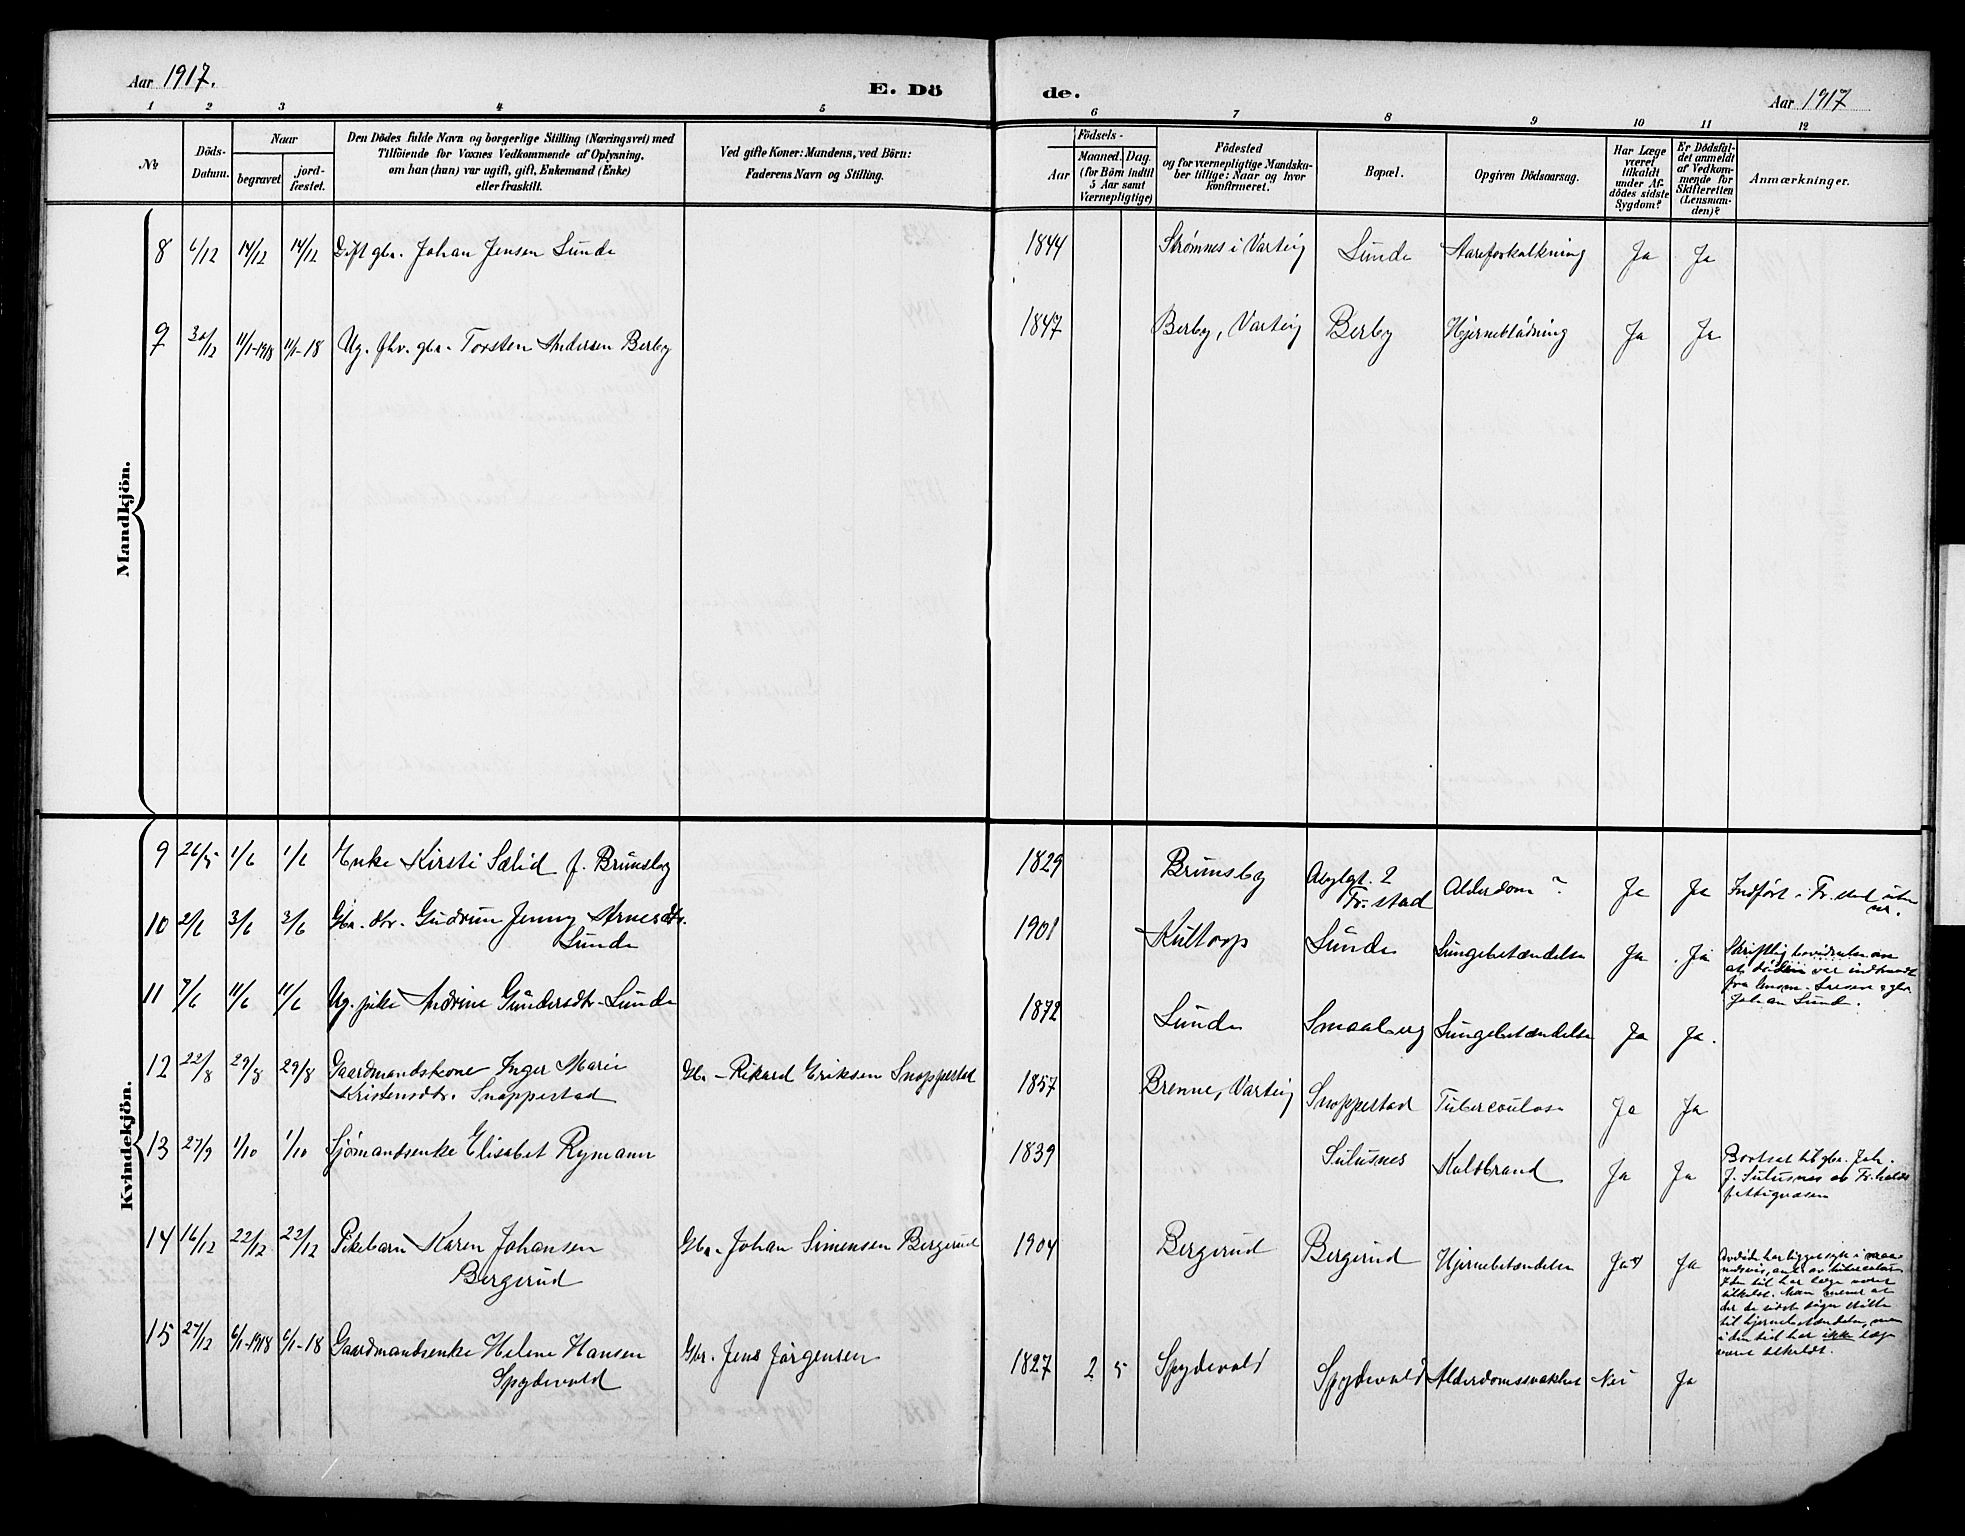 Aar 1917.
E. Dö
de.
Aar 1917
1 2 3 4 5 6 7 8 9 10 11 12
No
Döds-
Datum.
Naar
begravet
jord-
fæstet.
Den Dödes fulde Navn og borgerlige Stilling (Næringsvei) med
Tilföiende for Voxnes Vedkommende af Oplysning,
om han (hun) var ugift, gift, Enkemand (Enke)
eller fraskilt.
Ved gifte Koner: Mandens, ved Börn:
Faderens Navn og Stilling.
Födsels-
Aar
Maaned. Dag.
(for Börn indtil
5 Aar samt
Værnepligtige)
Födested
og for værnepligtige Mandska-
ber tillige: Naar og hvor
konfirmeret.
Bopæl.
Opgiven Dödsaarsag.
Har Læge
været
tilkaldt
under Af-
dödes sidste
Sygdom?
Er Dödsfal-
det anmeldt
af Vedkom-
mende for
Skifteretten
(Lensman-
den)?
Anmærkninger.
Mandkjön.
8 6/12 14/12 14/12 Gift gbr. Johan Jensen Lunde 1844 Strømnes i Varteig Lunde Aareforkalkning Ja Ja
9 30/12 11/1-1918 11/1-18 Ug. fhv. gbr. Torsten Andersen Berby 1847 Berby, Varteig Berby Hjerneblødning Ja Ja
Kvindekjön.
9 26/5 1/6 1/6 Enke Kirsti Sælid f. Brunsby 1829 Brunsby Asylgt. 2
Fr.stad Alderdom? Ja Ja Indført i Fr.stad uten
nr.
10 2/6 3/6 3/6 Gbr. dtr. Gudrun Jenny Arnesdtr.
Lunde 1901 Kultorp Lunde Lungebetændelse Ja Ja Skriftlig bevidnelse om
at døden var indtraadt
fra lensm. gbr.
Johan Lunde.
11 7/6 11/6 11/6 Ug. pike Andrine Gundersdtr. Lunde 1872 Lunde Smaaberg Lungebetændelse Ja Ja.
12 22/8 29/8 29/8 Gaardmandskone Inger Marie
Kristensdtr. Snoppestad Gbr. Rikard Eriksen Snoppestad 1857 Brenne, Varteig Snoppestad Tuberculose Ja Ja
13 27/9 1/10 1/10 Sjømandsenke Elisabet Rymann 1839 Sulusnes Koldbrand Ja Ja Bortsat til gbr. Joh.
J. Sulusnes av Fr.halds
fattigvæsen
14 16/12 22/12 22/12 Pikebarn Karen Johansen
Bergerud Gbr. Johan Simensen Bergerud 1904 Bergerud Bergerud Hjernebetændelse Ja Ja Avdøde har ligget syk i maa-
nedsvis, ant. av tuberculose.
I den tid har læge været
tilkaldt. Man mener at
der de sidste dager støtte
til hjernebetændelse, men
i den tid har ikke læge
været tilkaldt.
15 27/12 6/1-1918 6/1-18 Gaardmandsenke Helene Hansen
Spydevold Gbr. Jens Jørgensen 1827 2 5 Spydevold Spydevold Alderdomssvakhet Nei Ja